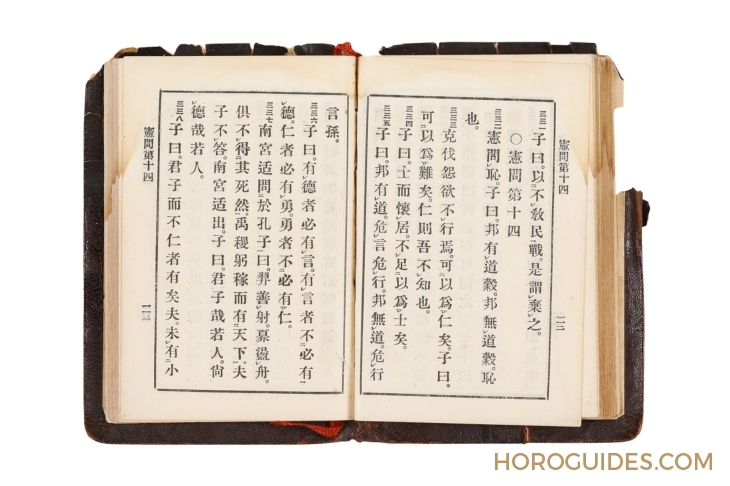 憲問第十四
一一二
三三一 子曰。以不敎民戰。是謂棄之。
○憲問第十四
三三二 憲問恥。子曰。邦有道穀。邦無道穀。恥
也。
三三三 克伐怨欲不行焉。可以爲仁矣。子曰。
可以爲難矣。仁則吾不知也。
三三四 子曰。士而懷居。不足以爲士矣。
三三五 子曰。邦有道。危言危行。邦無道。危行
言孫。
三三六 子曰。有德者必有言。有言者不必有
德。仁者必有勇。勇者不必有仁。
三三七 南宮适問於孔子曰。羿善射。奡盪舟。
俱不得其死然。禹稷躬稼而有天下。夫
子不答。南宮适出。子曰。君子哉若人。尙
德哉若人。
三三八 子曰。君子而不仁者有矣夫。未有小
憲問第十四
一一三
HOROGUIDES.COM